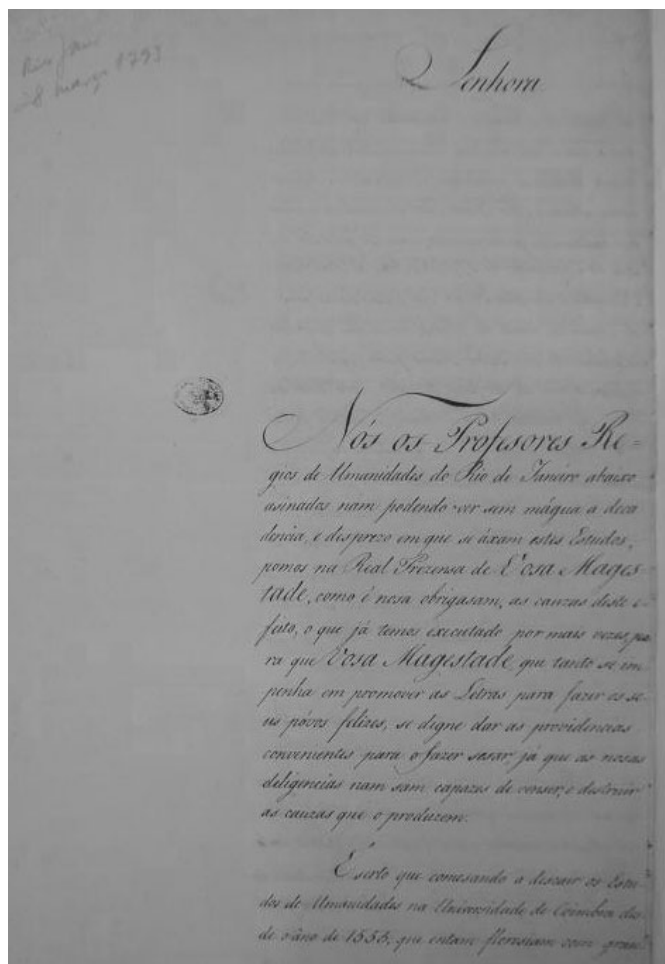 Rio Jan.
18 março 1793
Senhora
Nós os Profesores Re-
gios de Umanidades do Rio de Janeiro abaixo
asinados nam podendo ver sem mágua a deca
dencia, e desprezo em que se áxam estes Estudos,
pomos na Real Prezensa de Vosa Mages
tade, como é nosa obrigasam, as cauzas deste e-
feito, o que já temos executado por mais vezes, pa
ra que Vosa Magestade, que tanto se im
penha em promover as Letras para fazer os se-
us póvos felizes, se digne dar as providencias
convenientes para o fazer sesar, já que as nosas
diligencias nam sam capazes de venser, e destruir
as cauzas que o produzem.
É serto que comesando a descair os Estu-
dos de Umanidades na Universidade de Coimbra des-
de o âno de 1555, que entam floresiam com gran